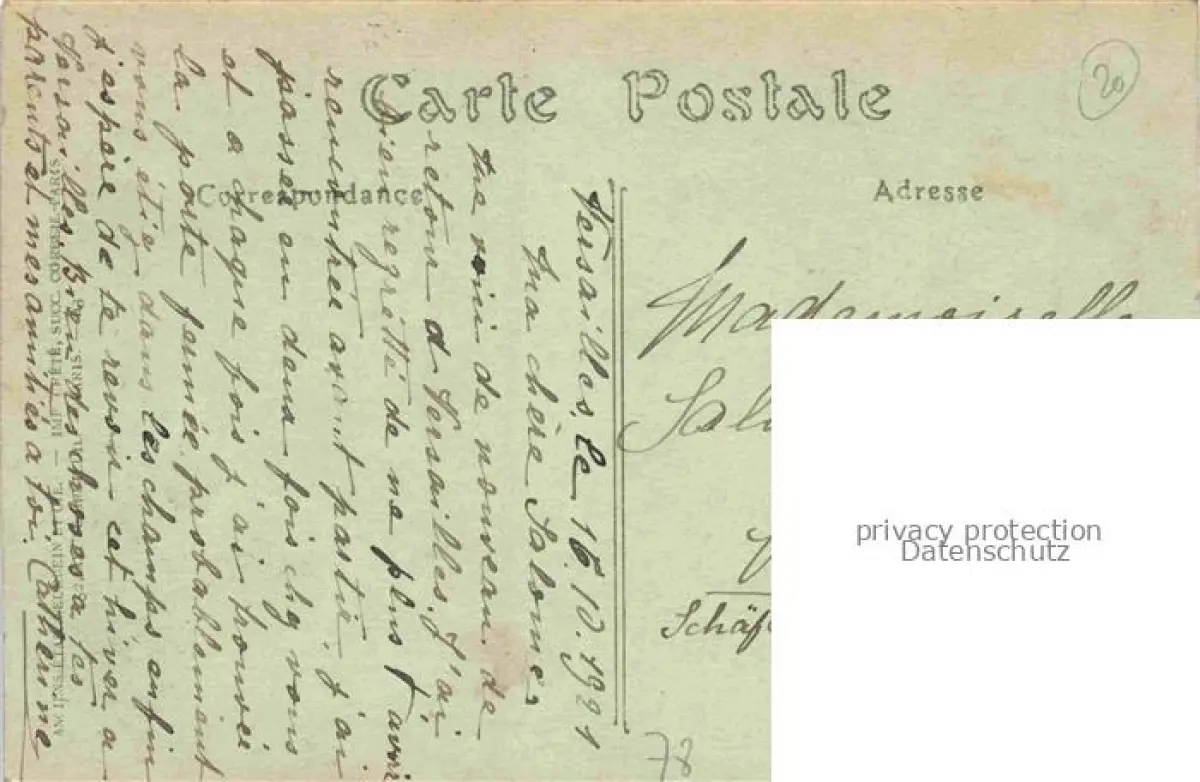 Carte Postale
Correspondance
Adresse
20
Versailles, le 16.10.1921
Ma chère Salomé,
Me voici de nouveau de
retour d Versailles. J'ai
bien regrétté de ne plus t'avoir
rencontrée avant partir, j'ai
passée en deux fois chez vous
et a chaque fois j'ai trouvée
la porte fermée, probablemant
vous étiez dans les champs, enfin
j'espère de te revoir cet hiver a
Versailles. Bien des choses a tes
parents et mes amitiés a toi. Catherine
Mademoiselle
Sal
Schäf
78
privacy protection
Datenschutz